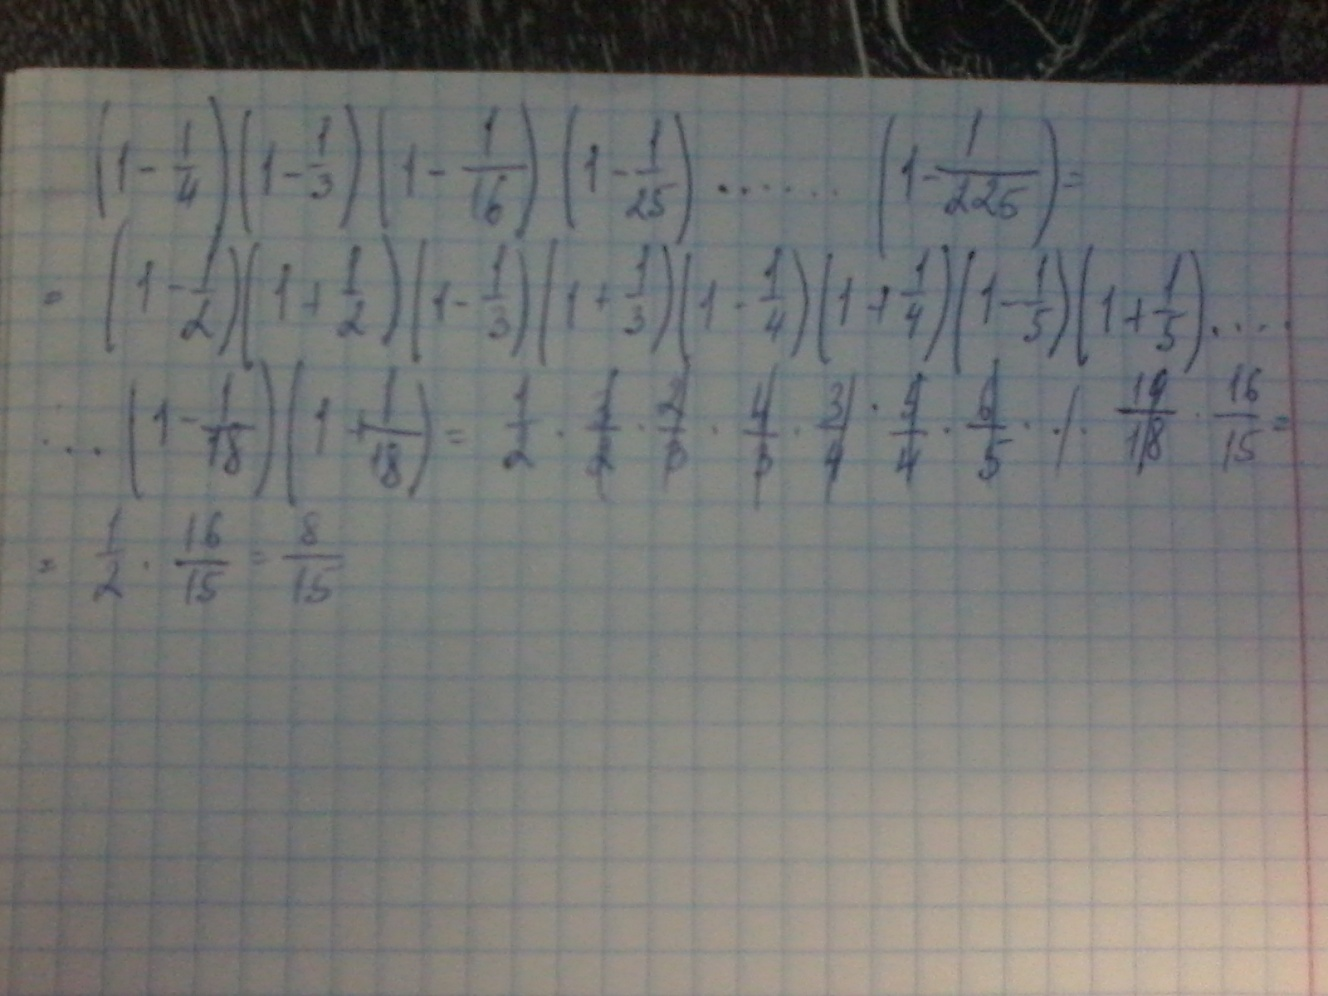 (1 - 1/4)(1 - 1/3)(1 - 1/16)(1 - 1/25) ...... (1 - 1/225) =
= (1 - 1/2)(1 + 1/2)(1 - 1/3)(1 + 1/3)(1 - 1/4)(1 + 1/4)(1 - 1/5)(1 + 1/5)....
... (1 - 1/18)(1 + 1/18) = 1/2 · 3/2 · 2/3 · 4/3 · 3/4 · 5/4 · 6/5 · . / . 19/18 · 16/15 =
= 1/2 · 16/15 = 8/15